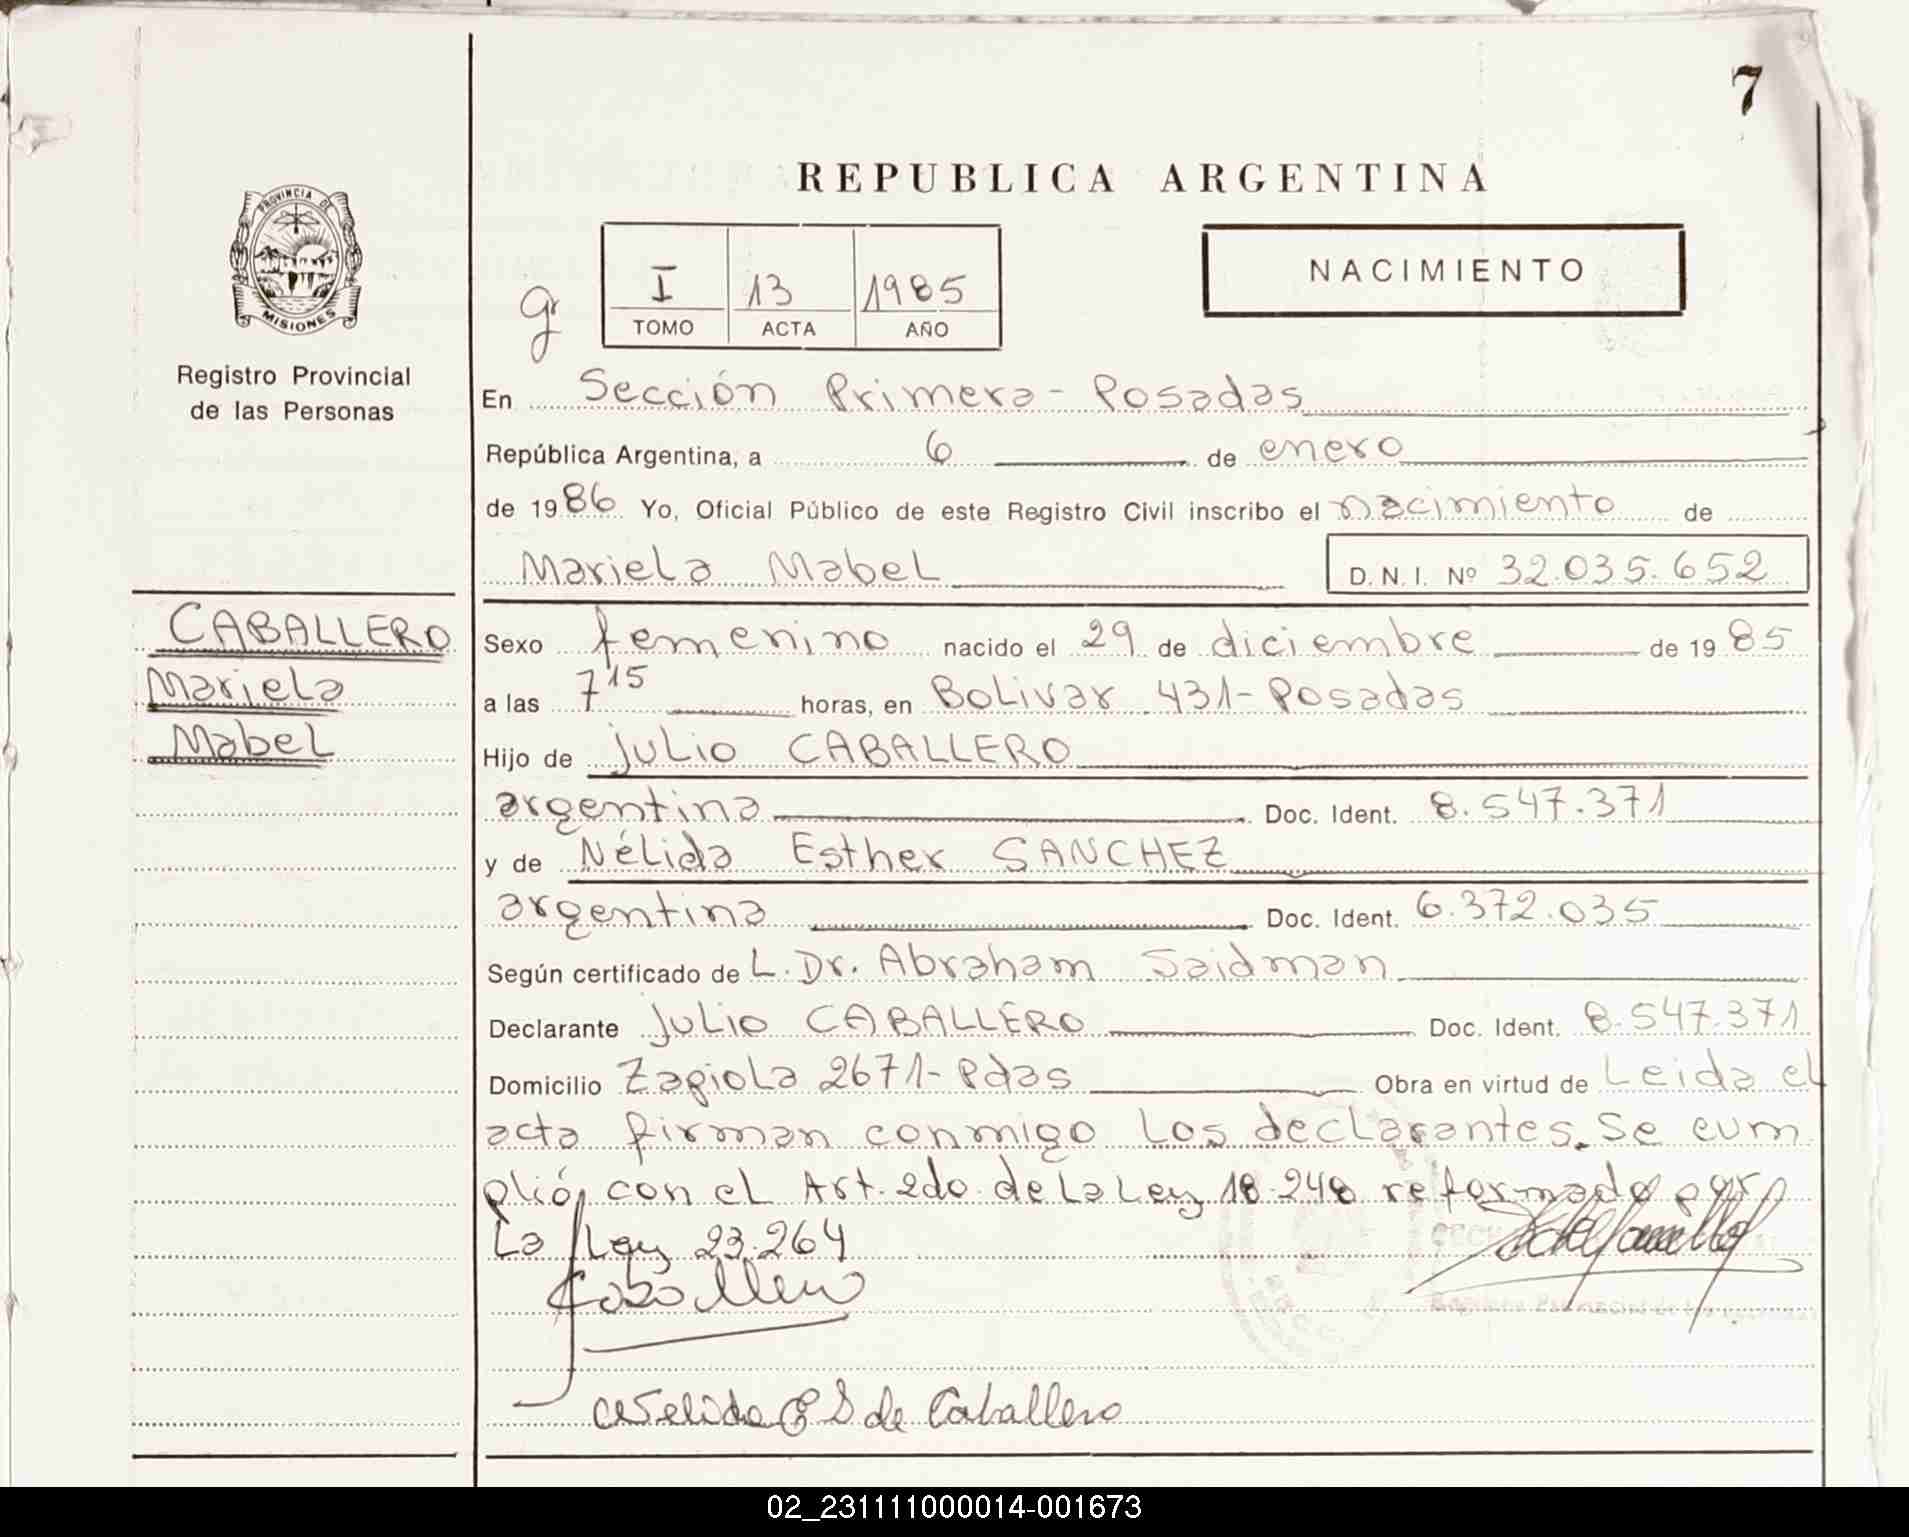 7
REPUBLICA ARGENTINA
PROVINCIA DE
MISIONES
Registro Provincial
de las Personas
I 13 1985
TOMO ACTA AÑO
NACIMIENTO
En Sección Primera - Posadas
República Argentina, a 6 de enero
de 1986 Yo, Oficial Público de este Registro Civil inscribo el nacimiento de
Mariela Mabel D.N.I. Nº 32.035.652
CABALLERO
Mariela
Mabel
Sexo femenino nacido el 29 de diciembre de 1985
a las 7 15 horas, en Bolivar 431 - Posadas
Hijo de Julio CABALLERO
argentina Doc. Ident. 8.547.371
y de Nélida Esther SANCHEZ
argentina Doc. Ident. 6.372.035
Según certificado de L. Dr. Abraham Saidman
Declarante Julio CABALLERO Doc. Ident. 8.547.371
Domicilio Zapiola 2671 - Pdas Obra en virtud de Leida el
acta firman conmigo los declarantes. Se cum
plió con el Art. 2do de la Ley 18.248 reformado por
la Ley 23.264
Caballero
Nelida E S de Caballero
02_231111000014-001673